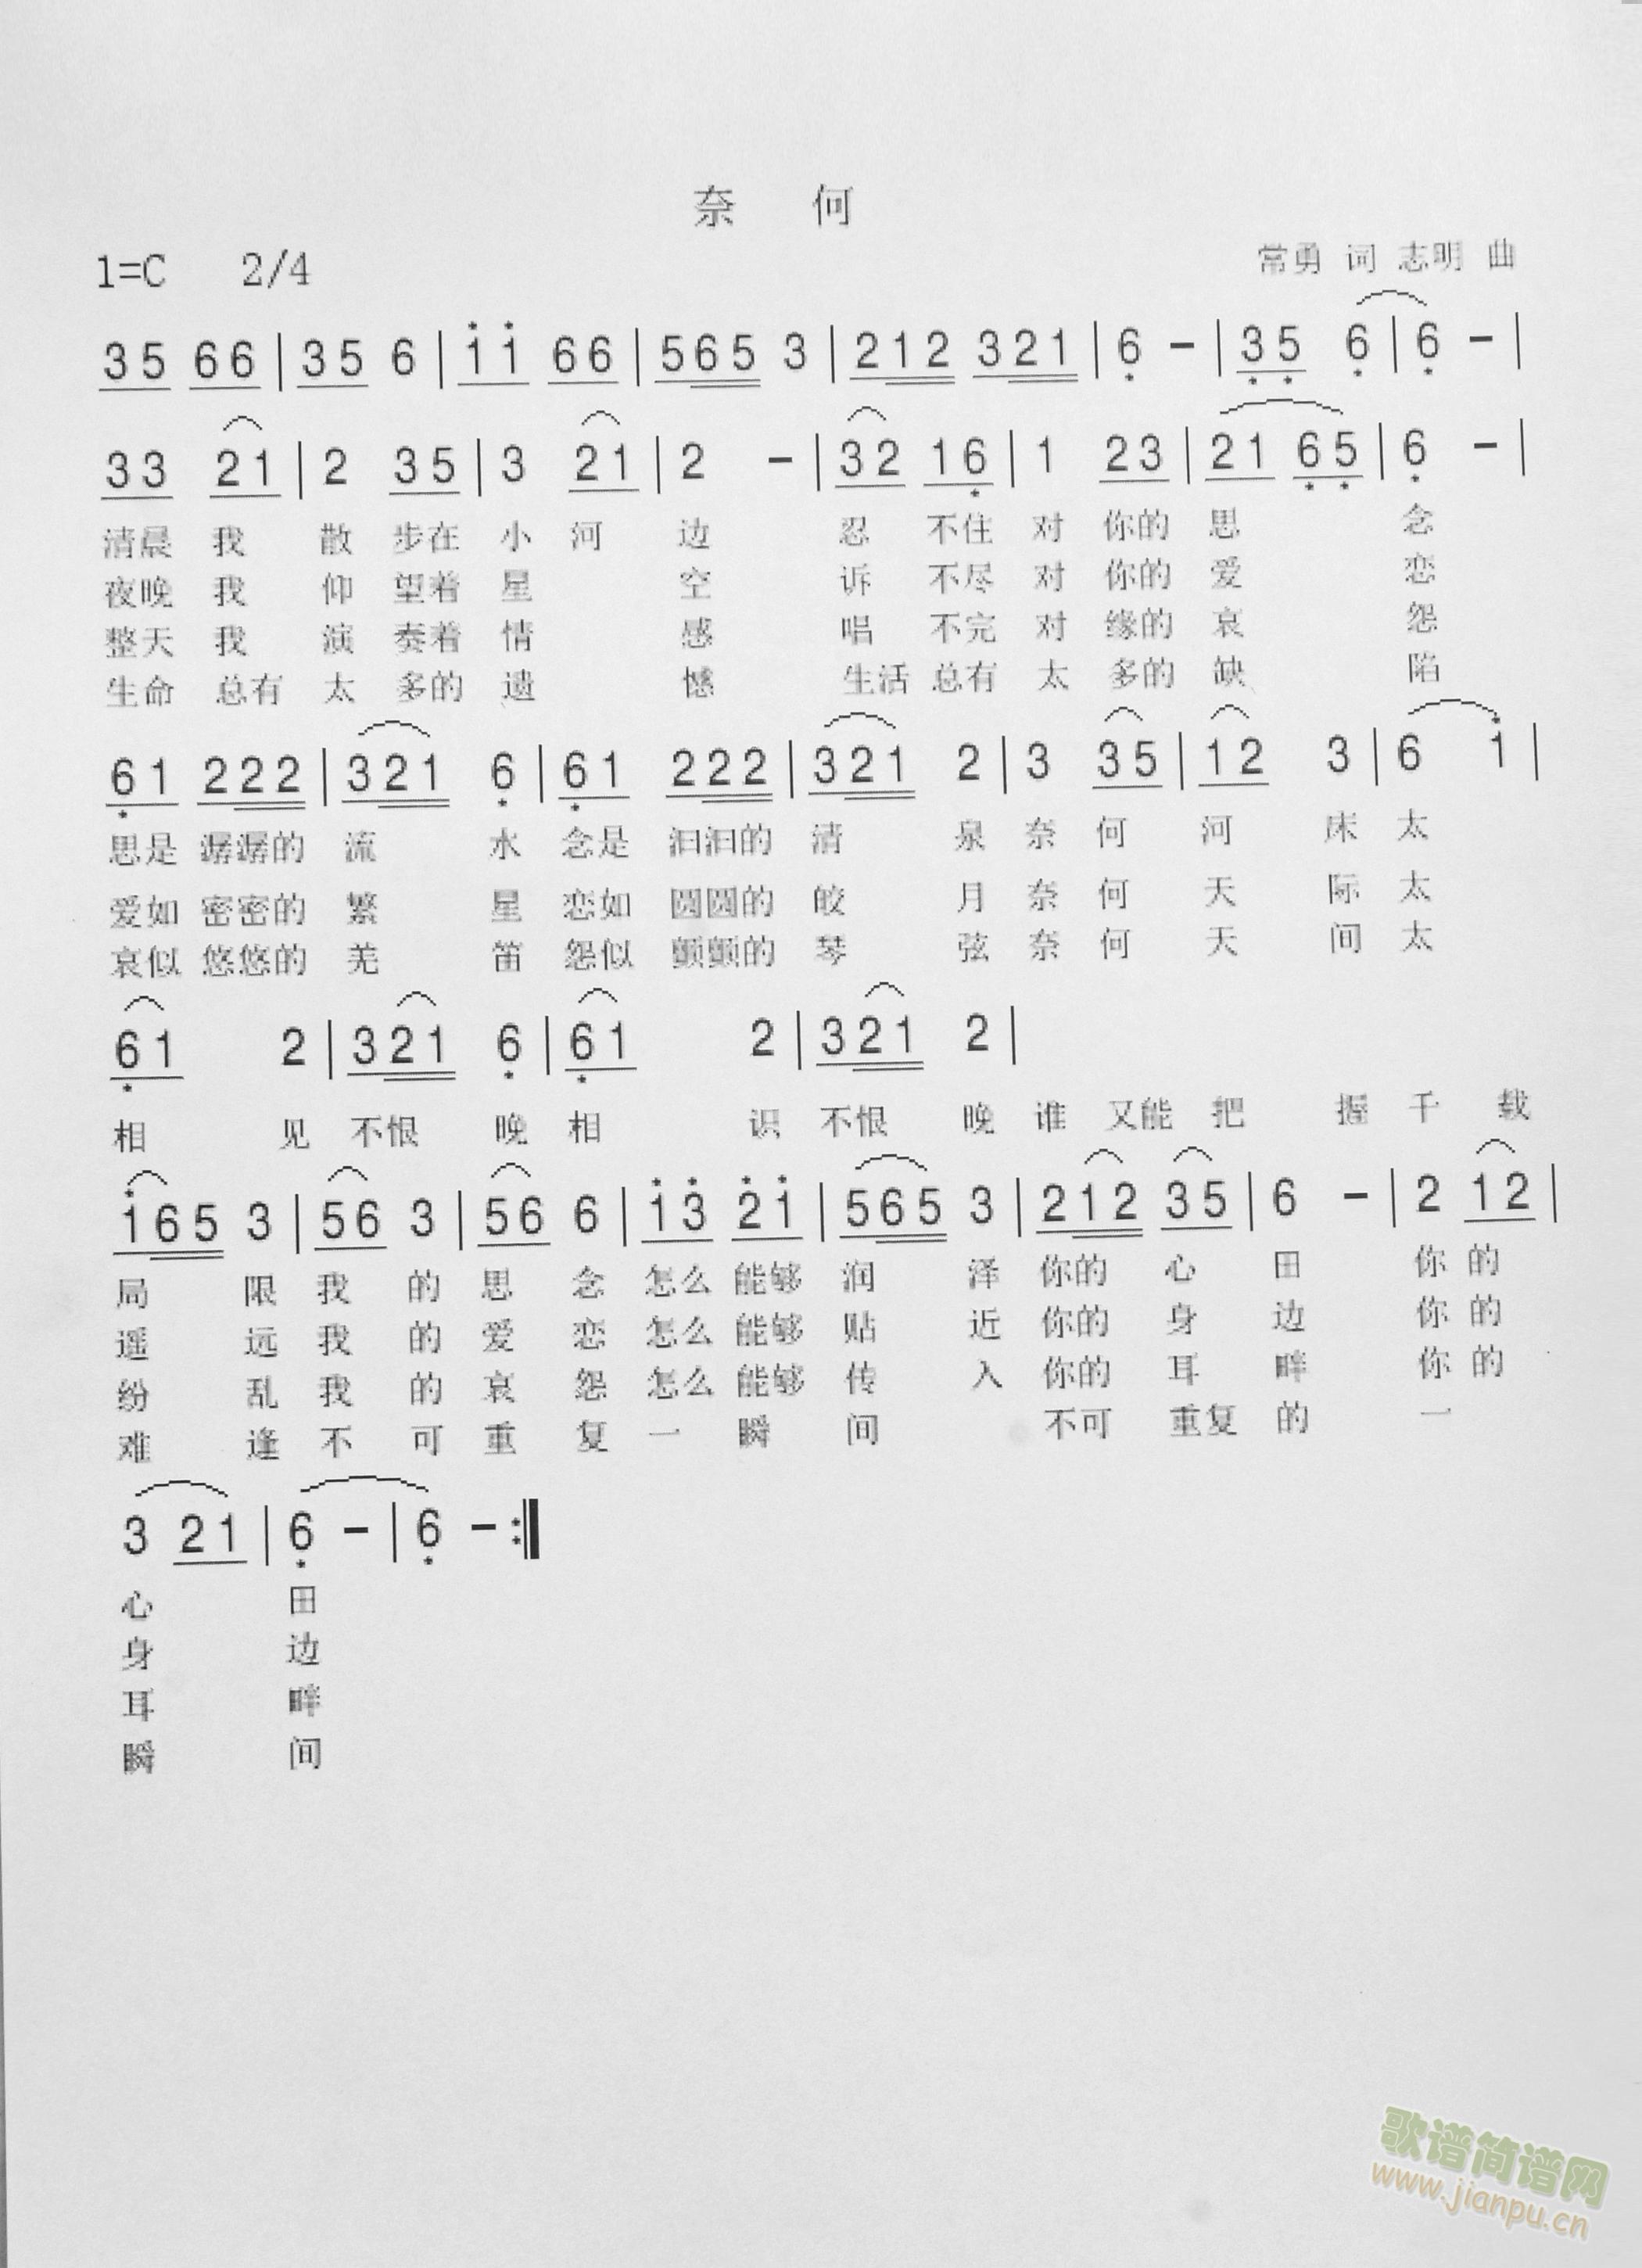 奈 何
1=C 2/4
常勇 词 志明 曲
35 66 | 35 6 | 11 66 | 565 3 | 212 321 | 6 - | 35 6 | 6 - |
33 21 | 2 35 | 3 21 | 2 - | 32 16 | 1 23 | 21 65 | 6 - |
清晨 我 散 步在 小 河 边 忍 不住 对 你的 思 念
夜晚 我 仰 望着 星 空 诉 不尽 对 你的 爱 恋
整天 我 演 奏着 情 感 唱 不完 对 缘的 哀 怨
生命 总有 太 多的 遗 憾 生活 总有 太 多的 缺 陷
61 222 | 321 6 | 61 222 | 321 2 | 3 35 | 12 3 | 6 1 |
思是 潺潺的 流 水 念是 汩汩的 清 泉 奈 何 河 床 太
爱如 密密的 繁 星 恋如 圆圆的 皎 月 奈 何 天 际 太
哀似 悠悠的 羌 笛 怨似 颤颤的 琴 弦 奈 何 天 间 太
61 2 | 321 6 | 61 2 | 321 2 |
相 见 不恨 晚 相 识 不恨 晚 谁 又能 把 握 千 载
165 3 | 56 3 | 56 6 | 13 21 | 565 3 | 212 35 | 6 - | 2 12 |
局 限 我 的 思 念 怎么 能够 润 泽 你的 心 田 你 的
遥 远 我 的 爱 恋 怎么 能够 贴 近 你的 身 边 你 的
纷 乱 我 的 哀 怨 怎么 能够 传 入 你的 耳 畔 你 的
难 逢 不 可 重 复 一 瞬 间 不可 重复 的 一
3 21 | 6 - | 6 - :‖
心 田
身 边
耳 畔
瞬 间
歌谱简谱网
www.jianpu.cn